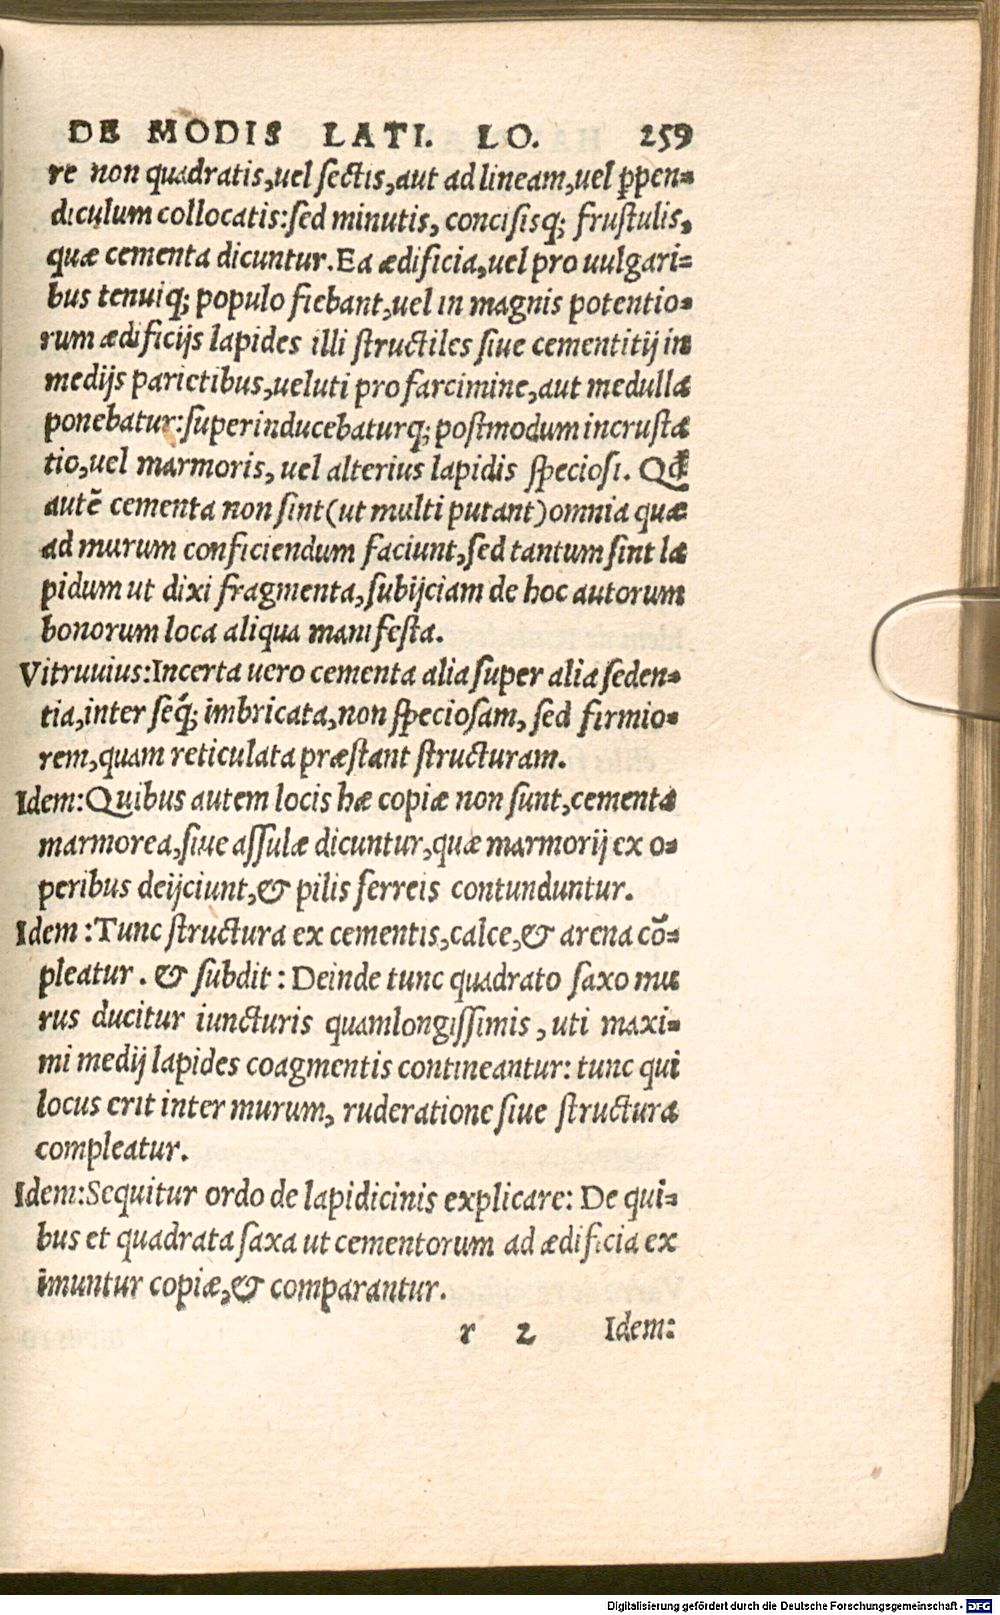 DE MODIS LATI. LO. 259
re non quadratis, uel sectis, aut ad lineam, uel ꝑpen-
diculum collocatis: sed minutis, concisisq; frustulis,
quæ cementa dicuntur. Ea ædificia, uel pro uulgari-
bus tenuiq; populo fiebant, uel in magnis potentio-
rum ædificijs lapides illi structiles siue cementitij in
medijs parietibus, ueluti pro farcimine, aut medulla
ponebatur: superinducebaturq; postmodum incrusta
tio, uel marmoris, uel alterius lapidis speciosi. Qd
autē cementa non sint (ut multi putant) omnia quæ
ad murum conficiendum faciunt, sed tantum sint la
pidum ut dixi fragmenta, subijciam de hoc autorum
bonorum loca aliqua manifesta.
Vitruuius: Incerta uero cementa alia super alia seden-
tia, inter seq́; imbricata, non speciosam, sed firmio-
rem, quam reticulata præstant structuram.
Idem: Quibus autem locis hæ copiæ non sunt, cementa
marmorea, siue assulæ dicuntur, quæ marmorij ex o-
peribus deijciunt, & pilis ferreis contunduntur.
Idem: Tunc structura ex cementis, calce, & arena cō-
pleatur. & subdit: Deinde tunc quadrato saxo mu
rus ducitur iuncturis quamlongissimis, uti maxi-
mi medij lapides coagmentis contineantur: tunc qui
locus erit inter murum, ruderatione siue structura
compleatur.
Idem: Sequitur ordo de lapidicinis explicare: De qui-
bus et quadrata saxa ut cementorum ad ædificia ex
imuntur copiæ, & comparantur.
r 2 Idem:
Digitalisierung gefördert durch die Deutsche Forschungsgemeinschaft - DFG